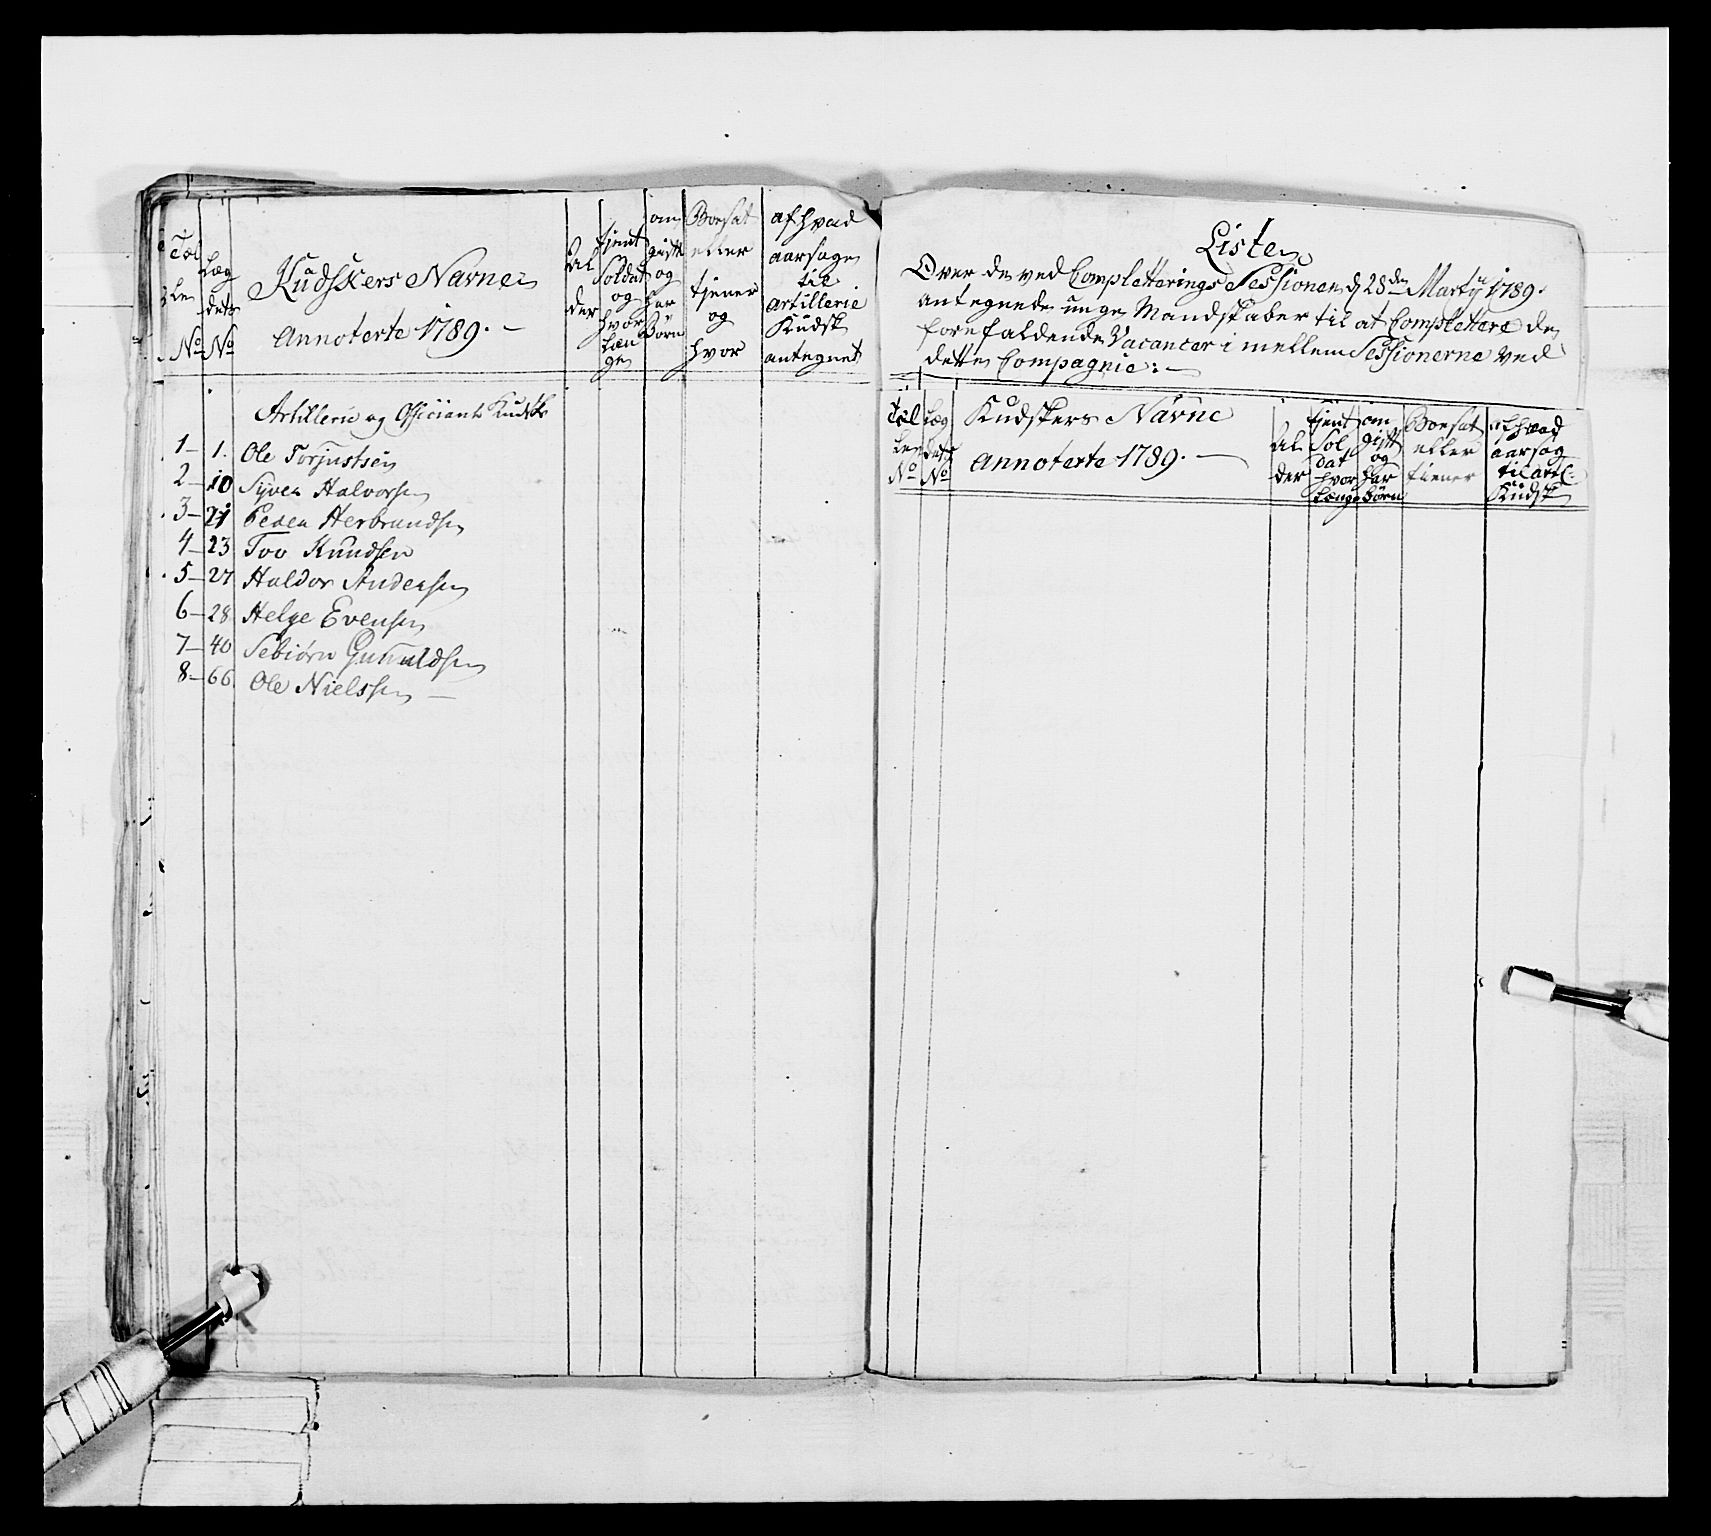 Tal
le
No
Læg
dets
No
Kudskers Navne
Annoterte 1789.
Al
der
tjent
Soldat
og
hvor
læn
ge
om
gift
og
har
Börn
Boesat
eller
tjener
og
hvor
af hvad
aarsage
til
artillerie
Kudsk
antegnet
Artillerie og Officiants Kudske
1 - 1. Ole Torjustsen
2 - 10 Syver Halvorsen
3 - 21 Peder Herbrandsen
4 - 23 Tov Knudsen
5 - 27 Haldor Andersen
6 - 28 Helge Evensen
7 - 40 Sebiørn Gunuldsen
8 - 66. Ole Nielssen
Liste
Over de ved Completterings Sessionen d 28de Martij 1789.
antegnede unge Mandskaber til at Complettere de
forefaldende Vacancer i mellem Sessionerne ved
dette Compagnie:
Tal
len
No
Læg
dets
No
Kudskers Navne
Annoterte 1789.
Al
der
tjent
Sol
dat
hvor
længe
om
gift
og
har
börn
Boesat
eller
tiener
af hvad
aarsag
til artl:
Kudsk